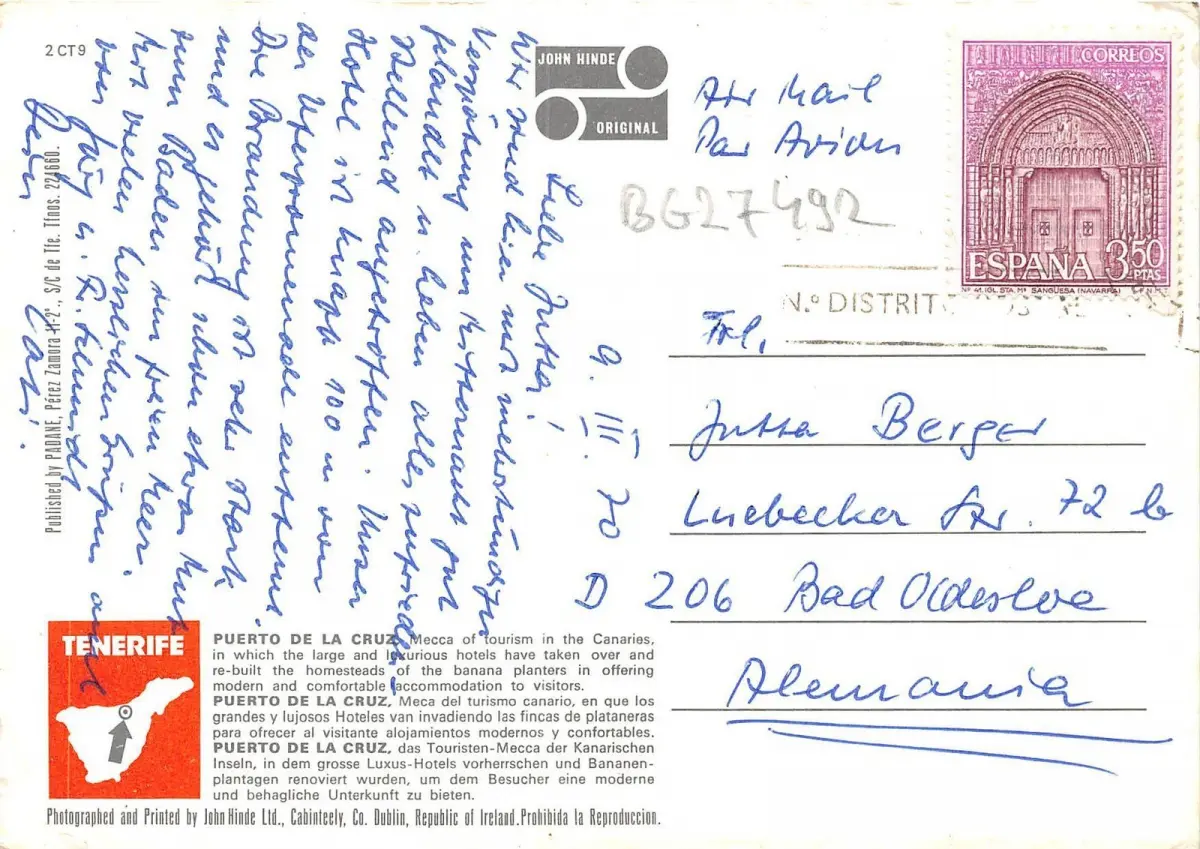 2 CT 9
JOHN HINDE
ORIGINAL
Air Mail
Par Avion
BG27492
CORREOS
ESPANA 3,50
PTAS
Nº 41. IGL. STA. Mª SANGÜESA (NAVARRA) F.N.M.T.
N.º DISTRIT
9. III. 70
Liebe Jutta!
Wir sind hier mit mehrstündiger
Verspätung um Mitternacht gut
gelandet u. haben alles zufrieden-
stellend angetroffen. Unser
Hotel ist knapp 100 m von
der Uferpromenade entfernt.
Die Brandung ist sehr stark,
und es gehört schon etwas Mut
zum Baden im freien Meer.
Mit vielen herzlichen Grüßen auch
von Jörg u. Fr. Schmidt
Dein
Frl.
Jutta Berger
Luebecker Str. 72 b
D 206 Bad Oldesloe
Alemania
Published by PADANE, Pérez Zamora 11-2º, S/C de Tfe. Tfnos. 221660.
TENERIFE
PUERTO DE LA CRUZ, Mecca of tourism in the Canaries,
in which the large and luxurious hotels have taken over and
re-built the homesteads of the banana planters in offering
modern and comfortable accommodation to visitors.
PUERTO DE LA CRUZ, Meca del turismo canario, en que los
grandes y lujosos Hoteles van invadiendo las fincas de plataneras
para ofrecer al visitante alojamientos modernos y confortables.
PUERTO DE LA CRUZ, das Touristen-Mecca der Kanarischen
Inseln, in dem grosse Luxus-Hotels vorherrschen und Bananen-
plantagen renoviert wurden, um dem Besucher eine moderne
und behagliche Unterkunft zu bieten.
Photographed and Printed by John Hinde Ltd., Cabinteely, Co. Dublin, Republic of Ireland. Prohibida la Reproduccion.